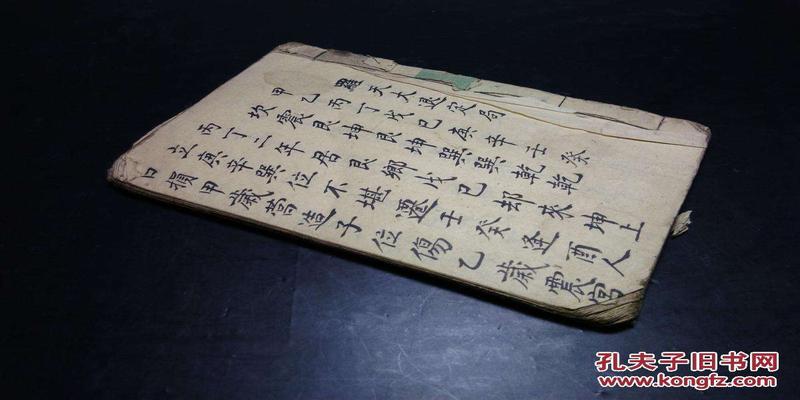 羅天大退定局
甲乙丙丁戊己庚辛壬癸
坎震艮坤艮坤巽巽乾乾
丙丁二年居艮鄉戊己却來坤上
立庚辛巽位不堪遷壬癸逢酉人
口損甲歲造子位傷乙歲震宮
孔夫子旧书网
www.kongfz.com